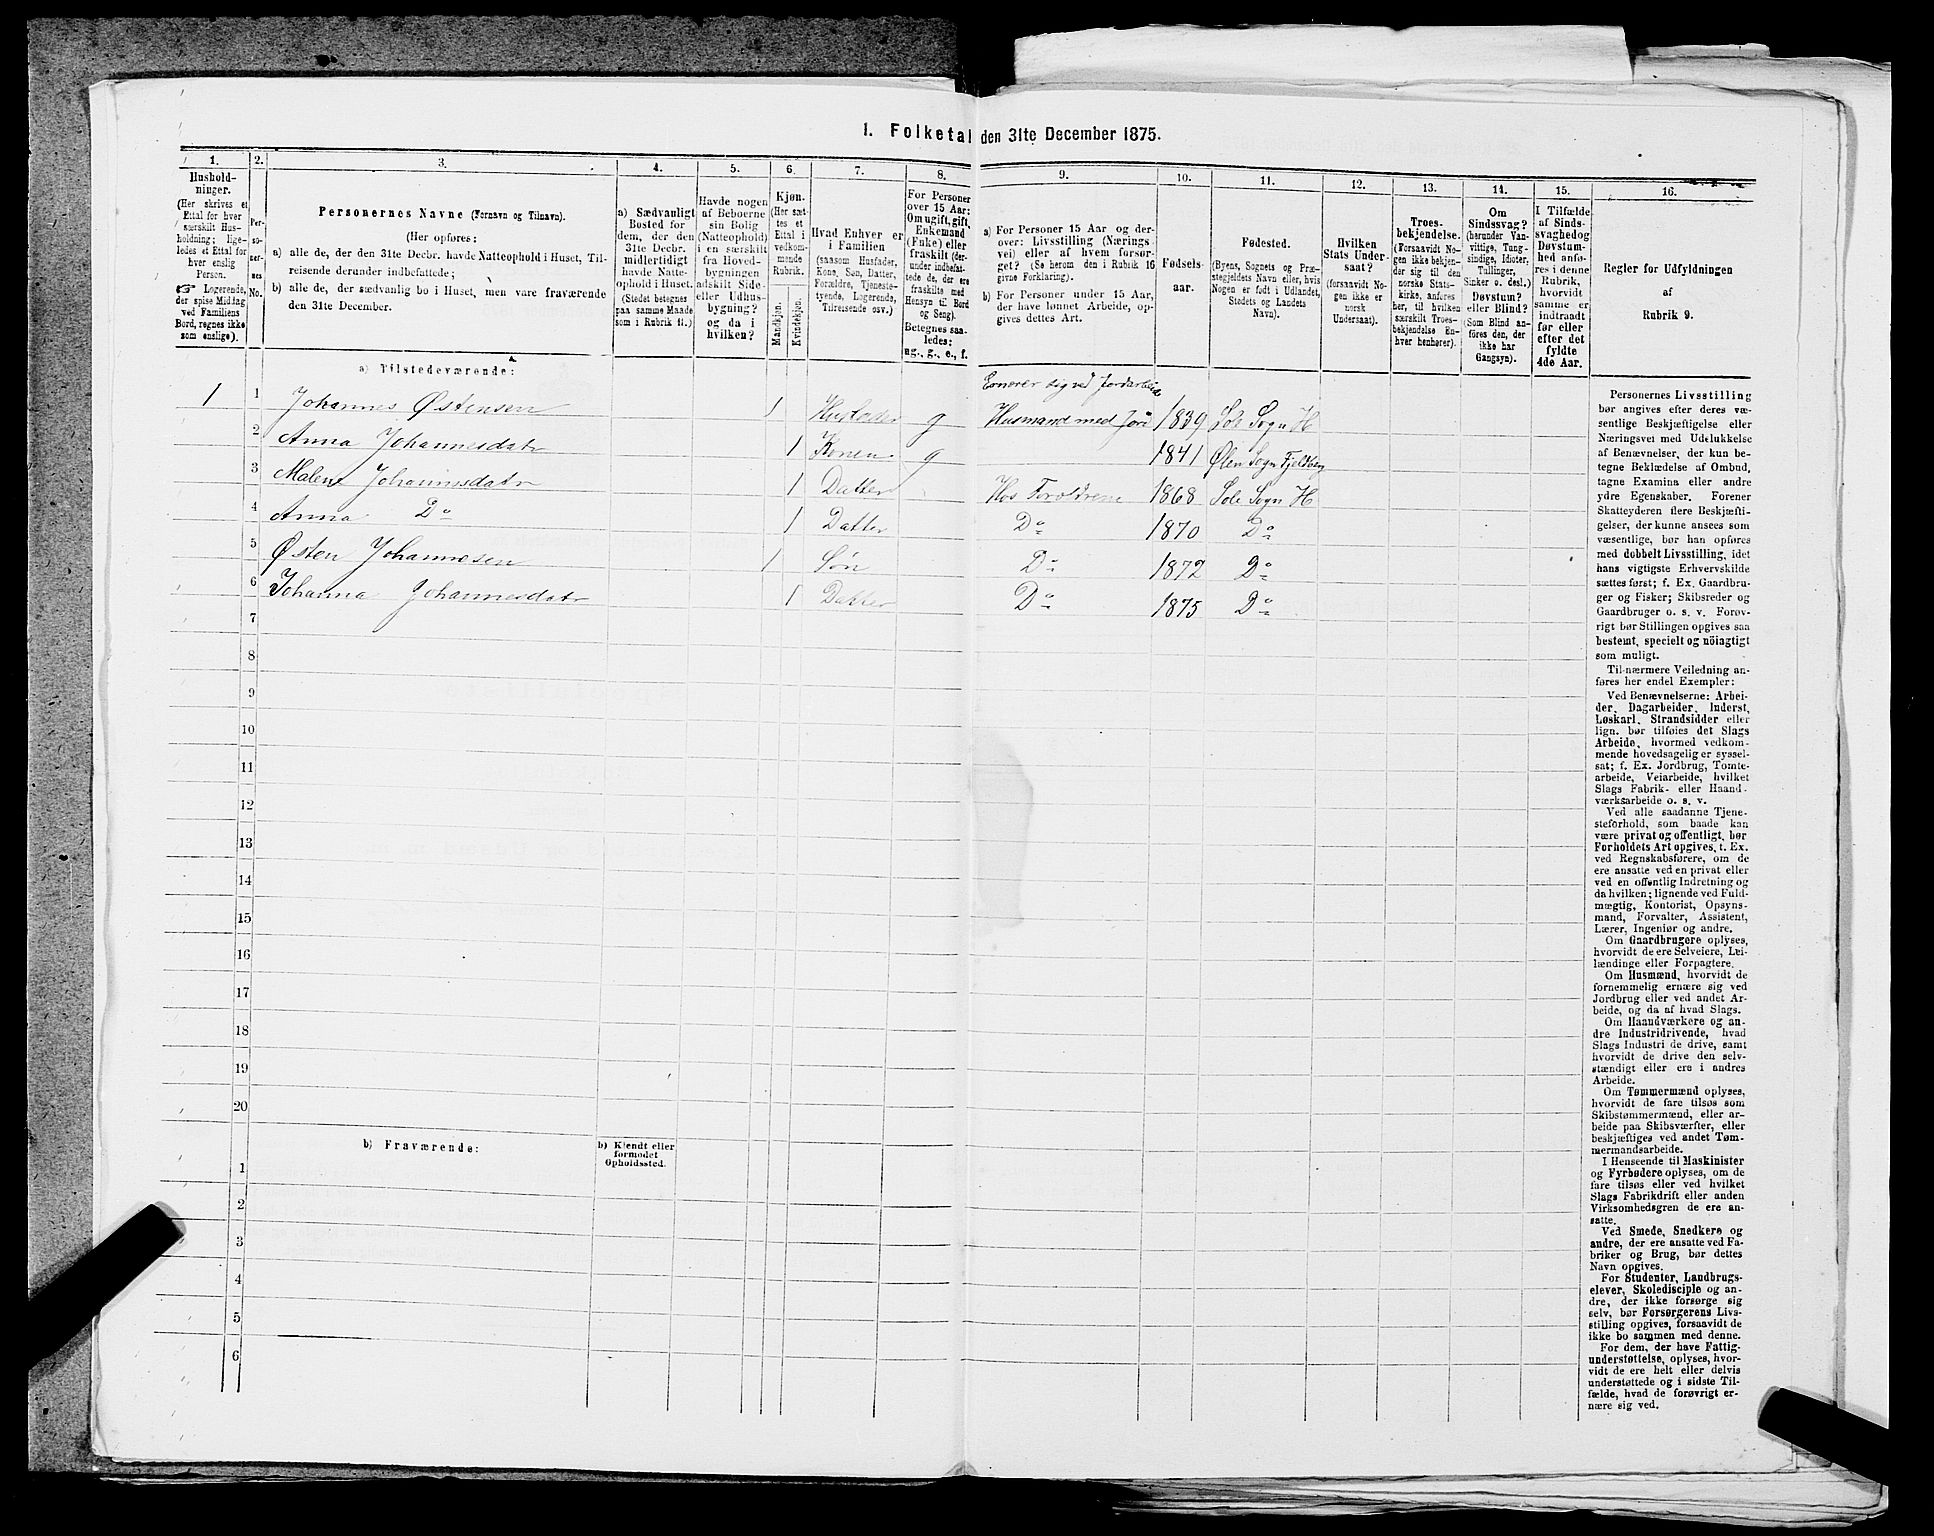 1. Folketal den 31te December 1875.
1. 2. 3. 4. 5. 6. 7. 8. 9. 10. 11. 12. 13. 14. 15. 16.
Hushold-
ninger.
(Her skrives et
Ettal for hver
særskilt Hus-
holdning; lige-
ledes et Ettal for
hver enslig
Person.
☞ Logerende,
der spise Middag
ved Familiens
Bord, regnes ikke
som enslige).
Per-
so-
ner-
nes
No.
Personernes Navne (Fornavn og Tilnavn).
(Her opføres:
a) alle de, der den 31te Decbr. havde Natteophold i Huset, Til-
reisende derunder indbefattede;
b) alle de, der sædvanlig bo i Huset, men vare fraværende
den 31te December.
a) Sædvanligt
Bosted for
dem, der den
31te Decbr.
midlertidigt
havde Natte-
ophold i Huset.
(Stedet betegnes
paa samme Maade
som i Rubrik 11.)
Havde nogen
af Beboerne
sin Bolig
(Natteophold)
i en særskilt
fra Hoved-
bygningen
adskilt Side-
eller Udhus-
bygning?
og da i
hvilken?
Kjøn.
(Her sæt-
tes et
Ettal i
vedkom-
mende
Rubrik.
Mandkjøn.
Kvindekjøn.
Hvad Enhver er
i Familien
(saasom Husfader,
Kone, Søn, Datter,
Forældre, Tjeneste-
tyende, Logerende,
Tilreisende osv.)
For Personer
over 15 Aar:
Om ugift, gift,
Enkemand
(Enke) eller
fraskilt (der-
under indbefat-
tede de, der ere
fraskilte med
Hensyn til Bord
og Seng).
Betegnes saa-
ledes:
ug., g., e., f.
a) For Personer 15 Aar og der-
over: Livsstilling (Nærings-
vei) eller af hvem forsør-
get? (Se herom den i Rubrik 16
givne Forklaring).
b) For Personer under 15 Aar,
der have lønnet Arbeide, op-
gives dettes Art.
Fødsels-
aar.
Fødested.
(Byens, Sognets og Præ-
stegjeldets Navn eller, hvis
Nogen er født i Udlandet,
Stedets og Landets
Navn).
Hvilken
Stats Under-
saat?
(forsaavidt No-
gen ikke er
norsk
Undersaat).
Troes-
bekjendelse.
(Forsaavidt No-
gen ikke bekjen-
der sig til den
norske Stats-
kirke, anføres
her, til hvilken
særskilt Troes-
bekjendelse En-
hver henhører).
Om
Sindssvag?
(herunder Van-
vittige, Tung-
sindige, Idioter,
Tullinger,
Sinker o. desl.)
Døvstum?
eller Blind?
(Som Blind an-
føres den, der
ikke har
Gangsyn).
I Tilfælde
af Sinds-
svaghed og
Døvstum-
hed anfø-
res i denne
Rubrik,
hvorvidt
samme er
indtraadt
før eller
efter det
fyldte
4de Aar.
Regler for Udfyldningen
af
Rubrik 9.
a) Tilstedeværende:
Ernærer sig ved Jordarbeide
1 1 Johannes Østensen 1 Husfader g Husmand med Jord 1839 Sole Sogn H
2 Anna Johannesdatr 1 Konen g 1841 Ølen Sogn Fjeldberg
3 Malene Johannesdatr 1 Datter Hos Forældrene 1868 Sole Sogn H
4 Anna Do 1 Datter Do 1870 Do
5 Østen Johannesen 1 Søn Do 1872 Do
6 Johanna Johannesdatr 1 Datter Do 1875 Do
7
8
9
10
11
12
13
14
15
16
17
18
19
20
b) Fraværende:
b) Kjendt eller
formodet
Opholdssted.
1
2
3
4
5
6
Personernes Livsstilling
bør angives efter deres væ-
sentlige Beskjæftigelse eller
Næringsvei med Udelukkelse
af Benævnelser, der kun be-
tegne Beklædelse af Ombud,
tagne Examina eller andre
ydre Egenskaber. Forener
Skatteyderen flere Beskjæfti-
gelser, der kunne ansees som
væsentlige, bør han opføres
med dobbelt Livsstilling, idet
hans vigtigste Erhvervskilde
sættes først; f. Ex. Gaardbru-
ger og Fisker; Skibsreder og
Gaardbruger o. s. v. Forøv-
rigt bør Stillingen opgives saa
bestemt, specielt og nöiagtigt
som muligt.
Til nærmere Veiledning an-
føres her endel Exempler:
Ved Benævnelserne: Arbei-
der, Dagarbeider, Inderst,
Løskarl, Strandsidder eller
lign. bør tilføies det Slags
Arbeide, hvormed vedkom-
mende hovedsagelig er syssel-
sat; f. Ex. Jordbrug, Tomte-
arbeide, Veiarbeide, hvilket
Slags Fabrik- eller Haand-
værksarbeide o. s. v.
Ved alle saadanne Tjene-
steforhold, som baade kan
være privat og offentligt, bør
Forholdets Art opgives, t. Ex.
ved Regnskabsførere, om de
ere ansatte ved en privat eller
ved en offentlig Indretning og
da hvilken; lignende ved Fuld-
mægtig, Kontorist, Opsyns-
mand, Forvalter, Assistent,
Lærer, Ingeniør og andre.
Om Gaardbrugere oplyses,
hvorvidt de ere Selveiere, Lei-
lændinge eller Forpagtere.
Om Husmænd, hvorvidt de
fornemmelig ernære sig ved
Jordbrug eller ved andet Ar-
beide, og da af hvad Slags.
Om Haandværkere og an-
dre Industridrivende, hvad
Slags Industri de drive, samt
hvorvidt de drive den selv-
stændigt eller ere i andres
Arbeide.
Om Tømmermænd oplyses,
hvorvidt de fare tilsøs som
Skibstømmermænd, eller ar-
beide paa Skibsværfter, eller
beskjæftiges ved andet Tøm-
mermandsarbeide.
I Henseende til Maskinister
og Fyrbødere oplyses, om de
fare tilsøs eller ved hvilket
Slags Fabrikdrift eller anden
Virksomhedsgren de ere an-
satte.
Ved Smede, Snedkere og
andre, der ere ansatte ved Fa-
briker og Brug, bør dettes
Navn opgives.
For Studenter, Landbrugs-
elever, Skoledisciple og an-
dre, der ikke forsørge sig
selv, bør Forsørgerens Livs-
stilling opgives, forsaavidt de
ikke bo sammen med denne.
For dem, der have Fattig-
understøttelse, oplyses, hvor-
vidt de ere helt eller delvis
understøttede og i sidste Til-
fælde, hvad de forøvrigt er-
nære sig ved.